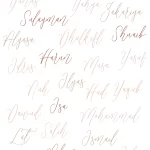 Idris Yahya Zakariya
Sulayman
Alyasa Dhulkifl Shuaib
Harun
Musa Yusuf
Ilyas
Nuh Hud Yaqub
Isa
Dawud Muhammad
Lut Salih Ismail